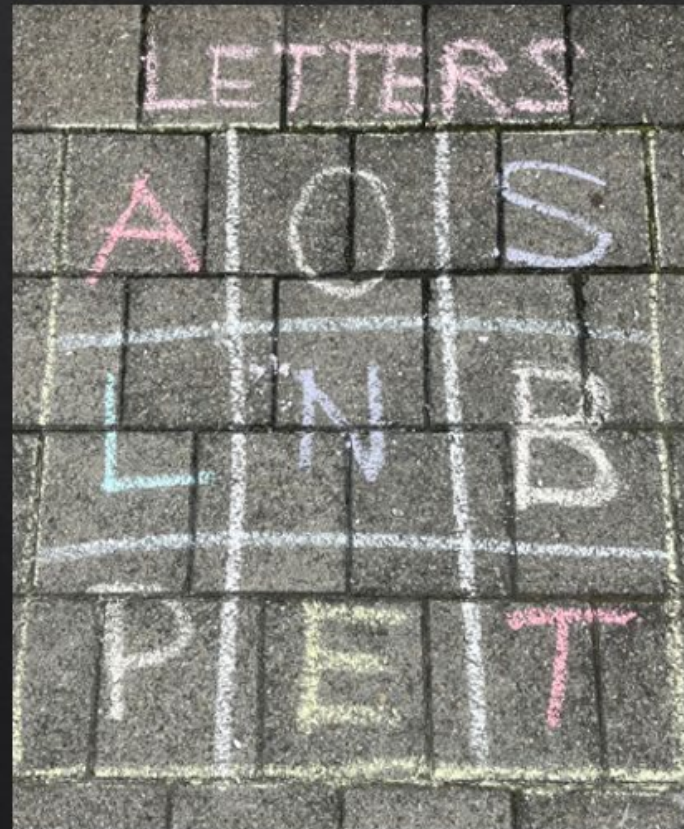 LETTERS
A O S
L N B
P E T